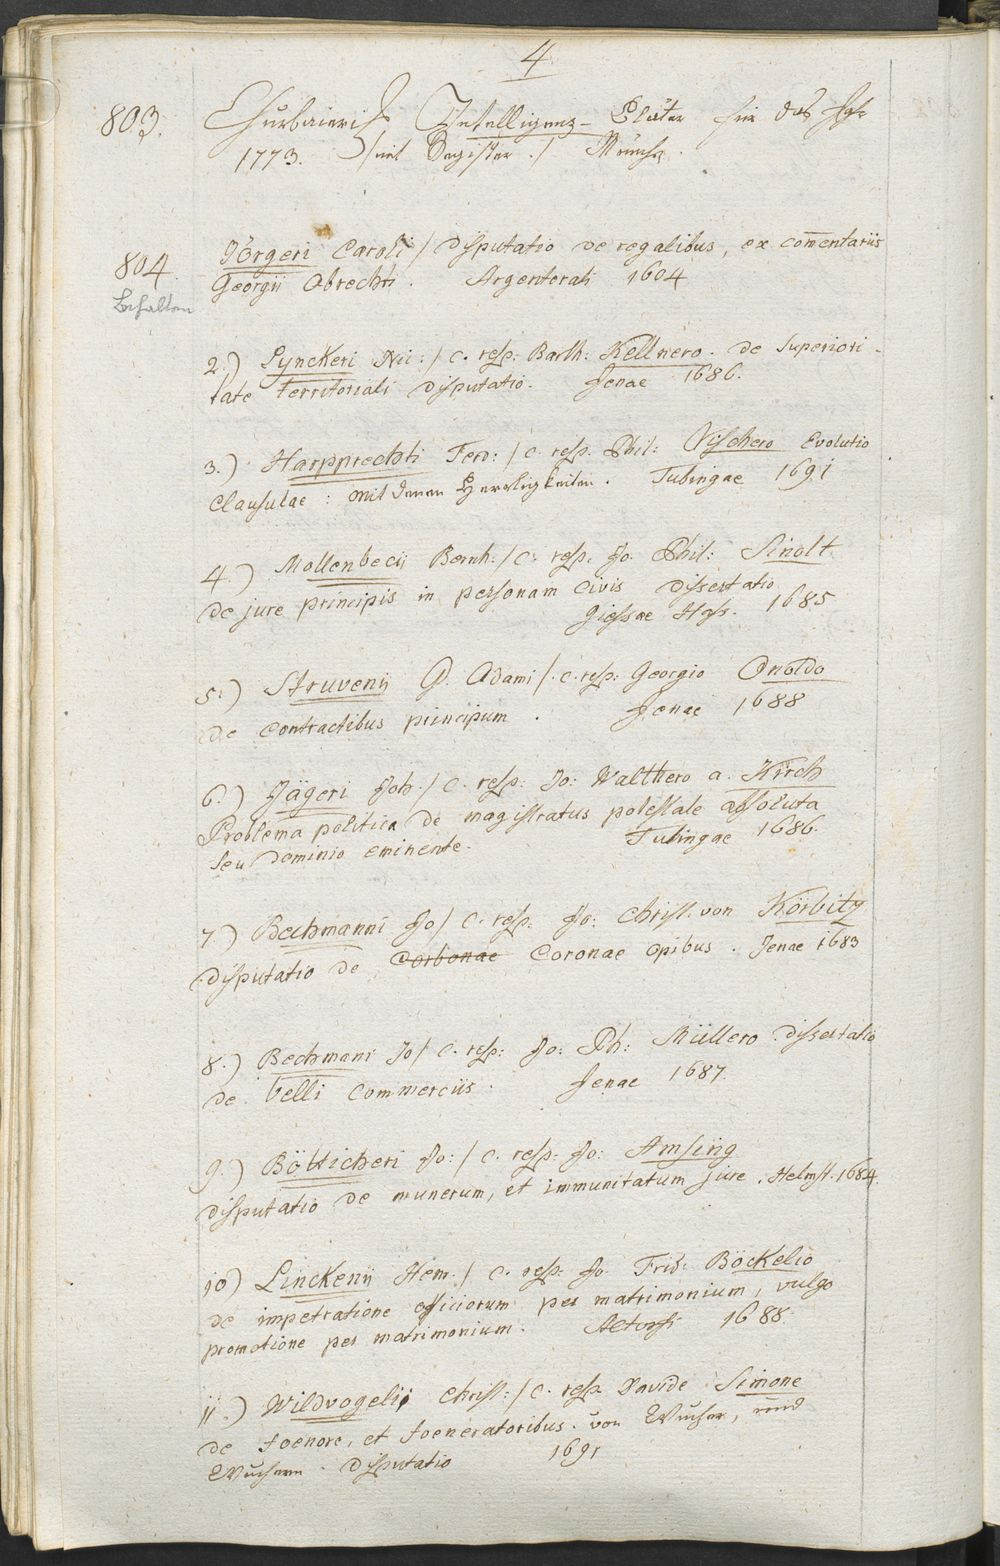 4
803. Churbaierisch Intelligenz-Bläter für das Jahr
1773. / mit Register. / Münch.
804. Jörgeri Caroli / disputatio de regalibus, ex com̄entariis
Behalten
Georgii Obrechti. Argentorati 1604
2.) Lynckeri Nic: / c. resp: Barth: Kellnero. de Superiori-
tate territoriali disputatio. Jenae 1686.
3.) Harpprechti Ferd: / c. resp. Phil: Vischero Evolutio
Clausulae: mit denen Herrligkeiten. Tubingae 1691
4.) Mollenbecij Bernh: / c. resp. Jo. Phil: Sinolt
de jure principis in personam civis dissertatio
Giessae Hass. 1685
5.) Struvenij G. Adami / c. resp: Georgio Onoldo
de contractibus principum. Jenae 1688
6.) Jägeri Joh. / c. resp: Jo: Walthero a. Kirch
Problema politica de magistratus potestate absoluta
seu dominio eminente. Tubingae 1686.
7.) Bechmanni Jo / c. resp. Jo: Christ: von Körbitz
disputatio de Corbonae Coronae opibus. Jenae 1683
8.) Bechmani Jo / c. resp: Jo: Ph: Müllero dissertatio
de belli commerciis. Jenae 1687.
9.) Bötticheri Jo: / c. resp: Jo: Amsing
disputatio de munerum, et immunitatum jure. Helmst. 1684.
10) Linckenij Hem: / c. resp: Jo Frid: Böckelio
de impetratione officiorum per matrimonium, vulgo
promotione per matrimonium. Altorfi 1688.
11.) Wildvogelij Christ: / c. resp Davide Simone
de foenore, et foeneratoribus. von Wucher, und
Wuchern. disputatio 1691